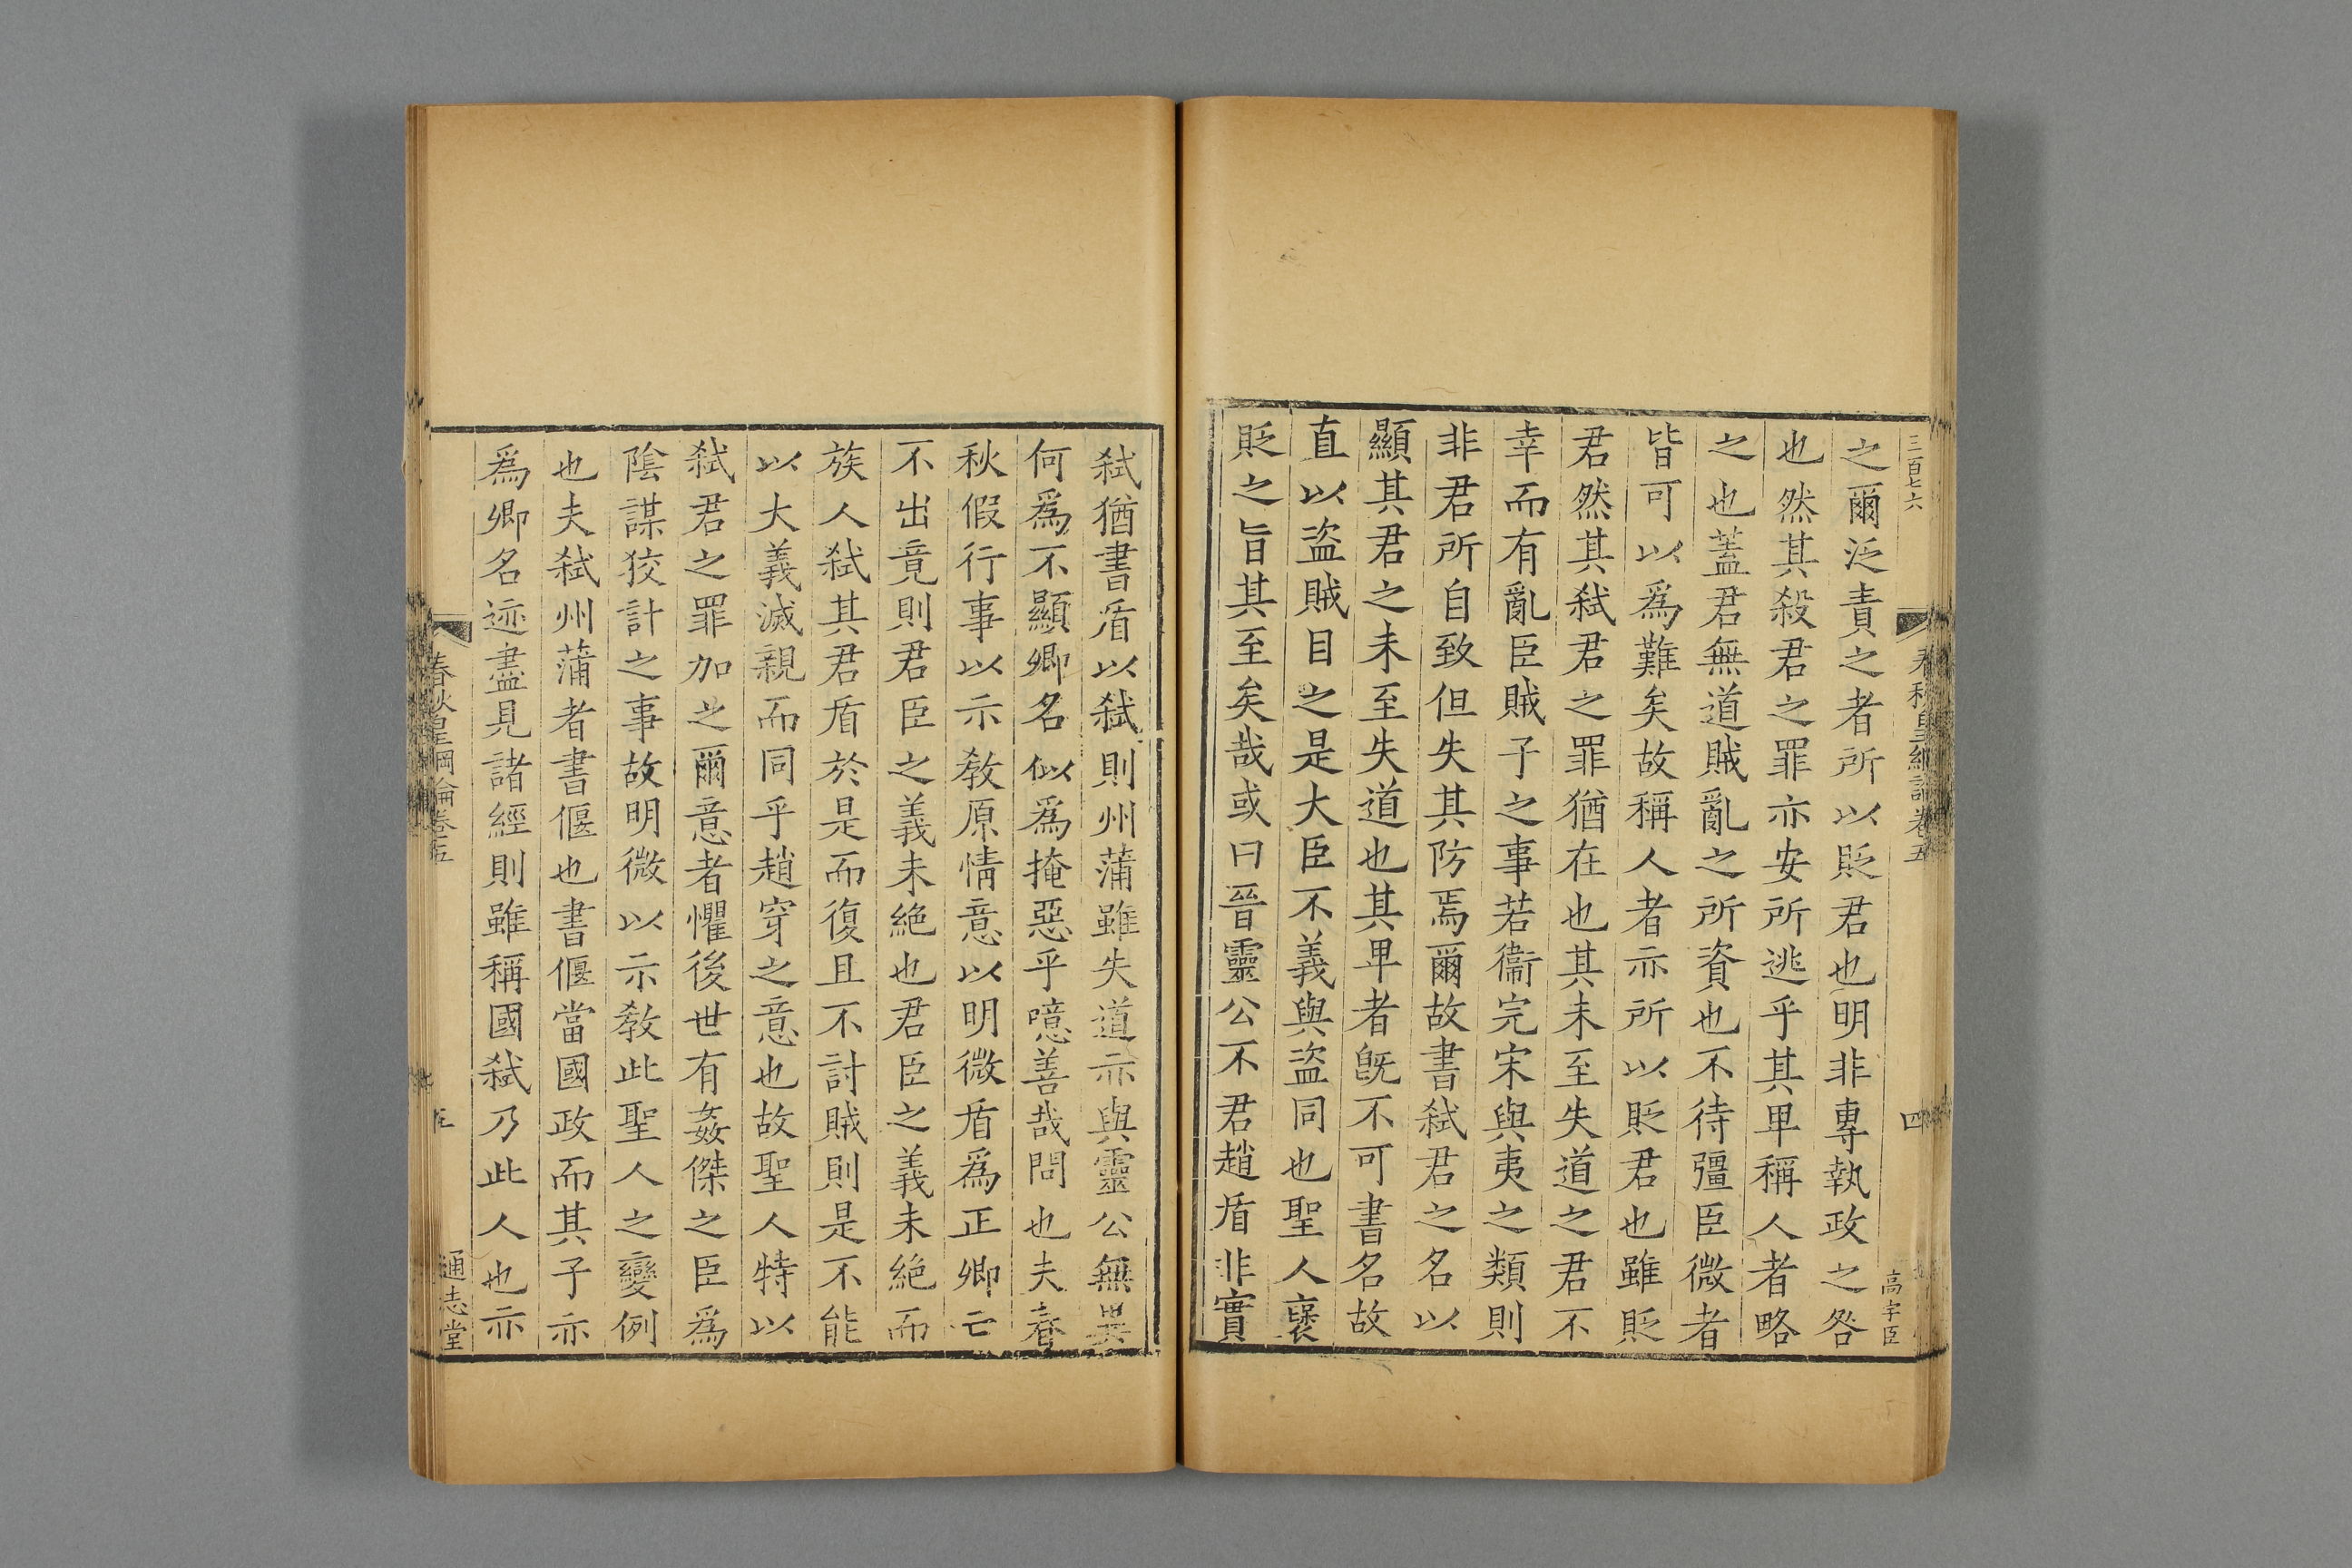 三百七六
四
高宇臣
之爾泛責之者所以貶君也明非專執政之咎
也然其殺君之罪亦安所逃乎其卑稱人者略
之也蓋君無道賊亂之所資也不待彊臣微者
皆可以爲難矣故稱人者示所以貶君也雖貶
君然其弑君之罪猶在也其未至失道之君不
幸而有亂臣賊子之事若衞完宋與夷之類則
非君所自致但失其防焉爾故書弑君之名以
顯其君之未至失道也其卑者旣不可書名故
直以盜賊目之是大臣不義與盜同也聖人襃
貶之旨其至矣哉或曰晉靈公不君趙盾非實
弑猶書盾以弑則州蒲雖失道示與靈公無異
何爲不顯卿名似爲掩惡乎噫善哉問也夫春
秋假行事以示敎原情意以明微盾爲正卿亡
不出竟則君臣之義未絶也君臣之義未絶而
族人弑其君盾於是而復且不討賊則是不能
以大義滅親而同乎趙穿之意也故聖人特以
弑君之罪加之爾意者懼後世有姦傑之臣爲
陰謀狡計之事故明微以示敎此聖人之變例
也夫弑州蒲者書偃也書偃當國政而其子亦
爲卿名迹盡見諸經則雖稱國弑乃此人也示
春秋皇綱論卷五
通志堂